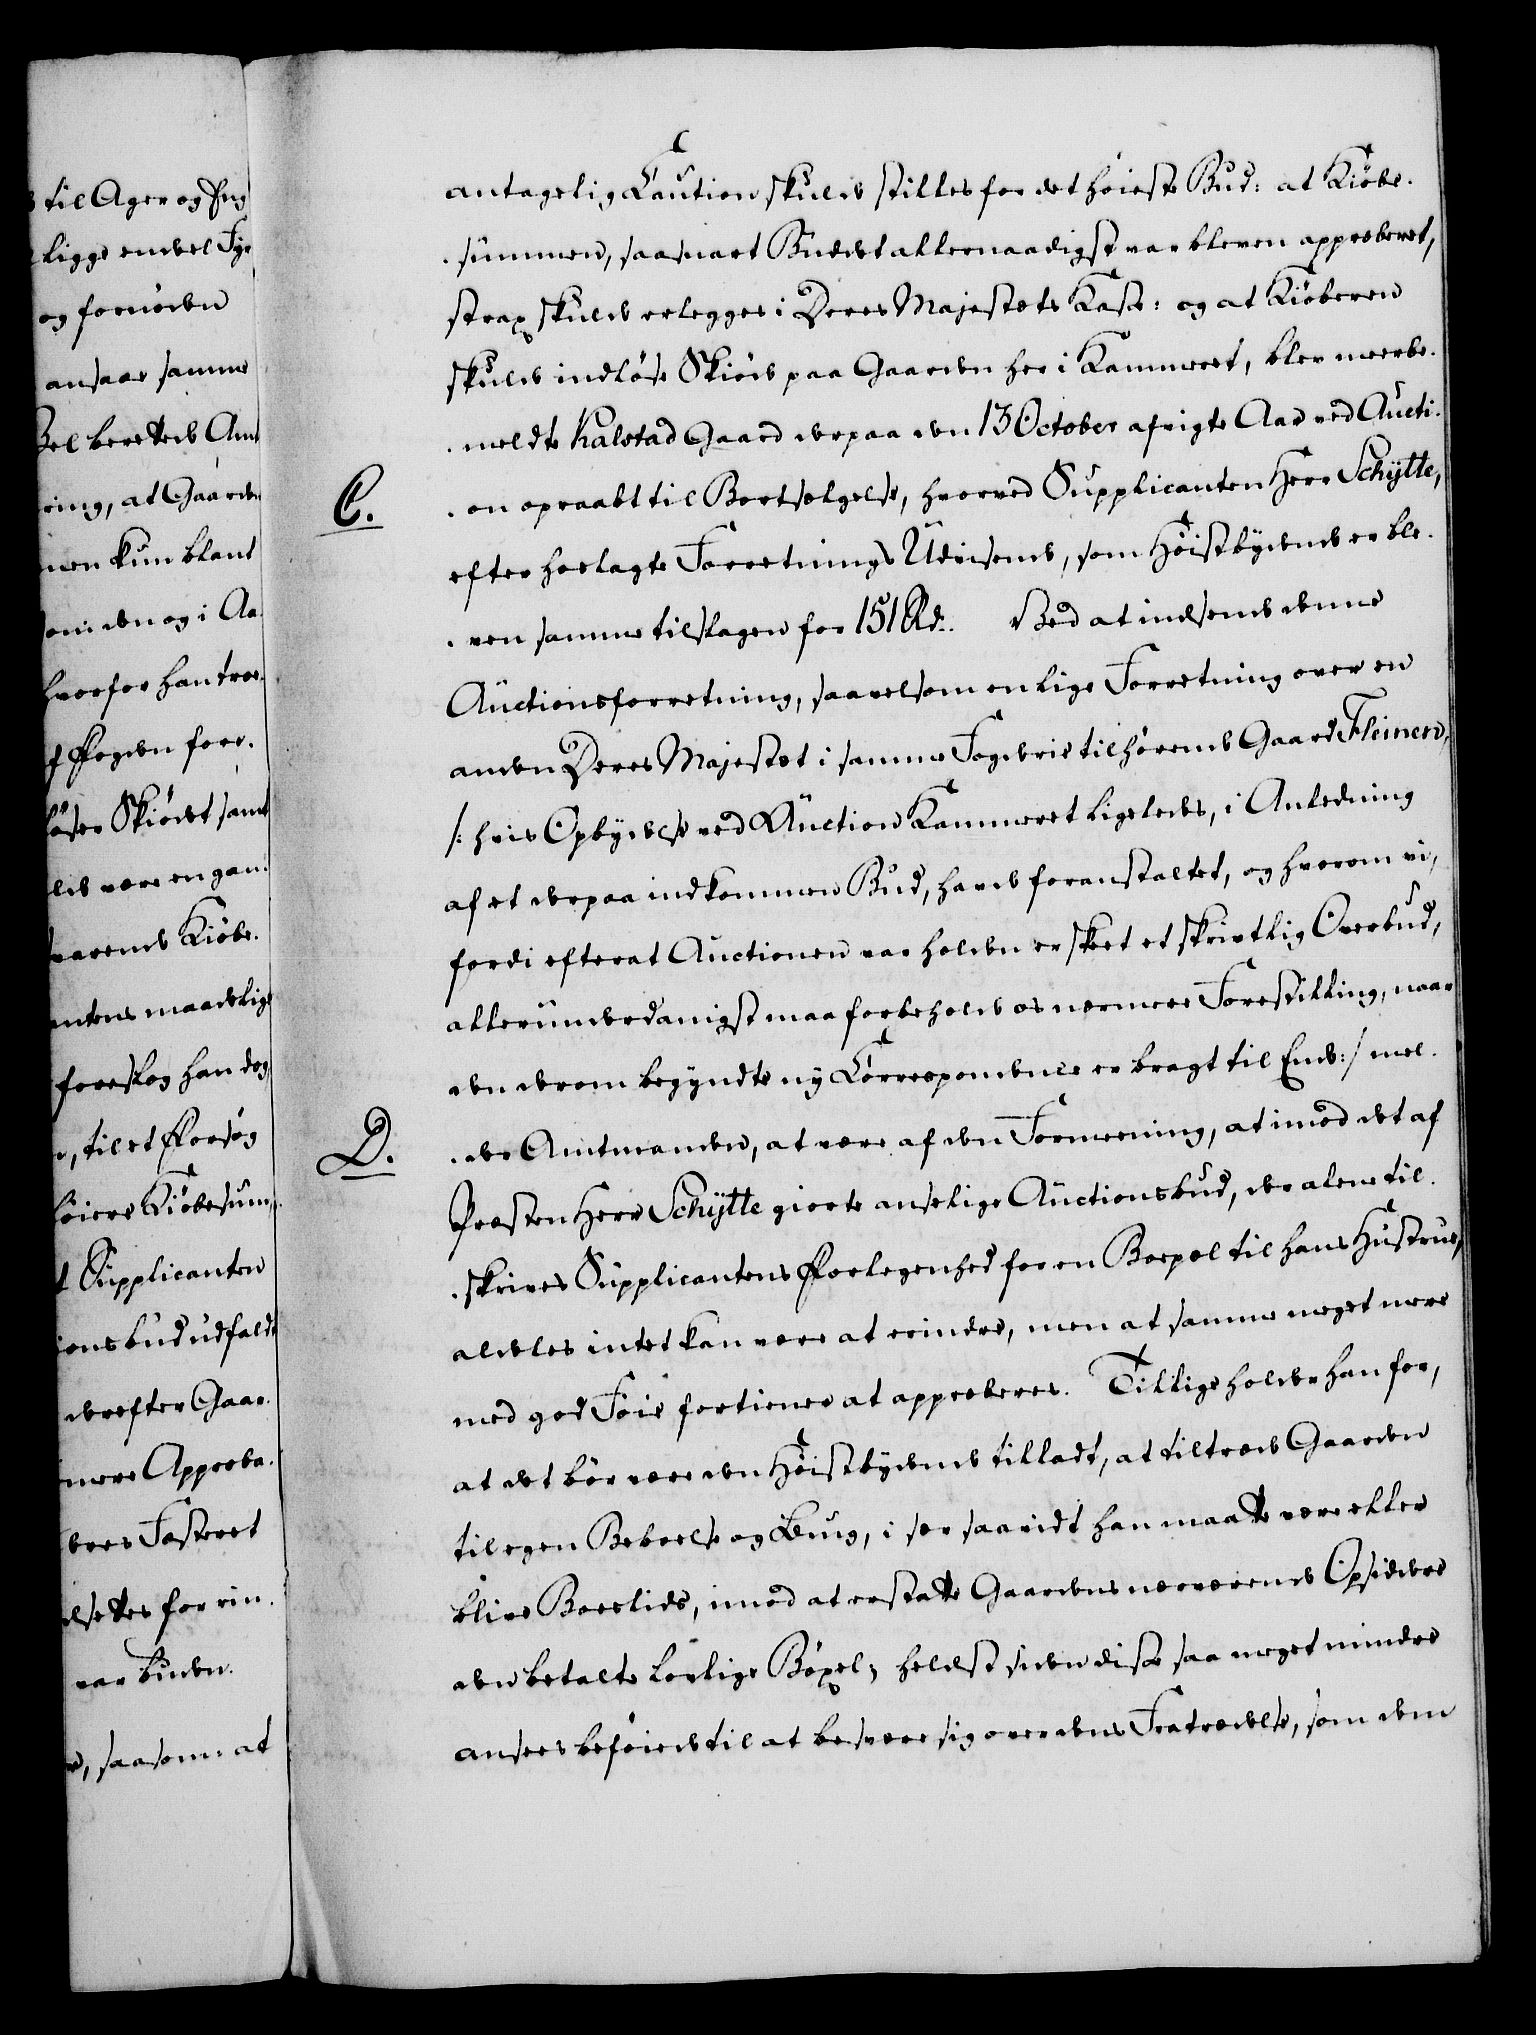 til Ager og Eng
ligge endeel Fyr
og fornöden
ansaae samme
Vel berettede Amt
ring, at Gaarden
men kun blant
som den og i Aa-
hvorfor han troe-
f Fogden fore-
löser Skiödet samt
lde være en gam-
værende Kiöbe-
ntens maadelige
foreslog han dog
, til et Forsög
höiere Kiöbesum,
t Supplicanten
ions bud udfaldt
derefter Gaar-
mere Approba-
deres Fæsteret
dsettes for rin-
var buden.
, saasom: at
antagelig Caution skulde stilles for det höieste Bud: at Kiöbe-
-summen, saasnart Budet allernaadigst var bleven approberet,
strax skulde erlegges i Deres Majestæts Kasse: og at Kiöberen
skulde indlöse Skiöde paa Gaarden her i Kammeret, blev meerbe-
-meldte Kalstad Gaard derpaa den 13 October afvigte Aar ved Aucti-
C.
-on opraabt til Bortsælgelse, hvorved Supplicanten Herr Schytte,
efter hoslagte Forretnings Udvisende, som Höistbydende er ble-
-ven samme tilslagen for 151 Rd.. Ved at indsende denne
Auctionsforretning, saavelsom en lige Forretning over en
anden Deres Majestæt i samme Fogderie tilhörende Gaard Fleinen,
/: hvis Opbydelse ved Auction Kammeret ligeledes, i Anledning
af et derpaa indkommen Bud, havde foranstaltet, og hvorom vi,
fordi efterat Auctionen var holden er skeet et skrivtlig Overbud,
allerunderdanigst maa forbeholde os nærmere Forestilling, naar
den derom begyndte ny Correspondence er bragt til Ende :/ mel-
D.
-der Amtmanden, at være af den Formeening, at imod det af
Præsten Herr Schytte giorte anselige Auctionsbud, der alene til-
-skrives Supplicantens Forlegenhed for en Boepæl til hans Hustrue,
aldeles intet kan være at erindre, men at samme meget mere
med god Föie fortiener at approberes. Tillige holder han for,
at det bör være den Höistbydende tilladt, at tiltræde Gaarden
til egen Beboelse og Brug, i sær saavidt han maatte være eller
blive Boeslids, imod at erstatte Gaardens nærværende Opsiddere
den betalte lovlige Böxel; heldst siden disse saa meget mindre
ansees beföiede til at besvære sig over dens Fratrædelse, som dem